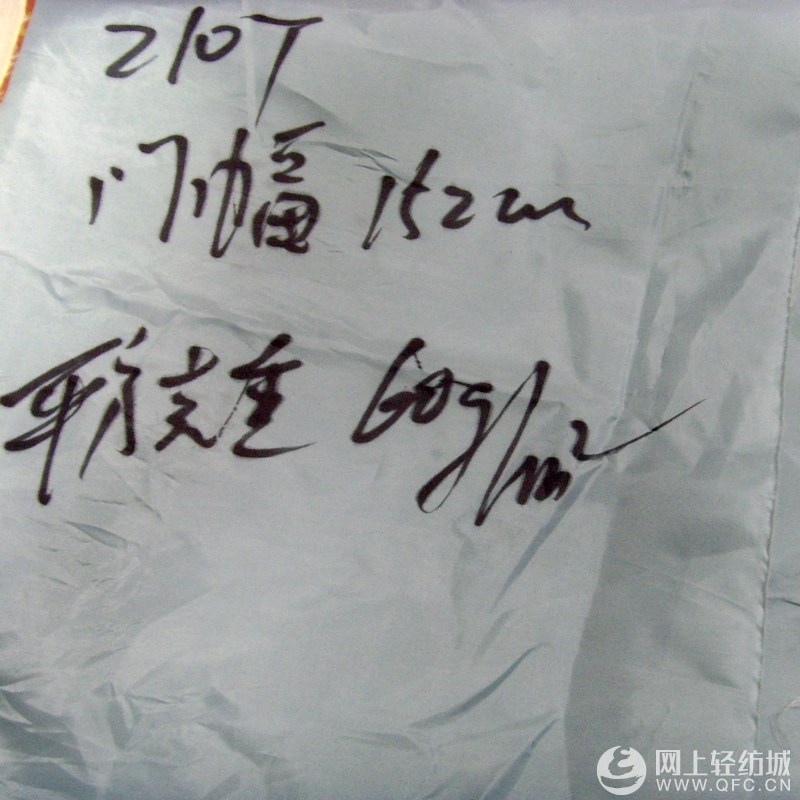 210T
门幅 152cm
平方克重 60g/m²
网上轻纺城
WWW.QFC.CN